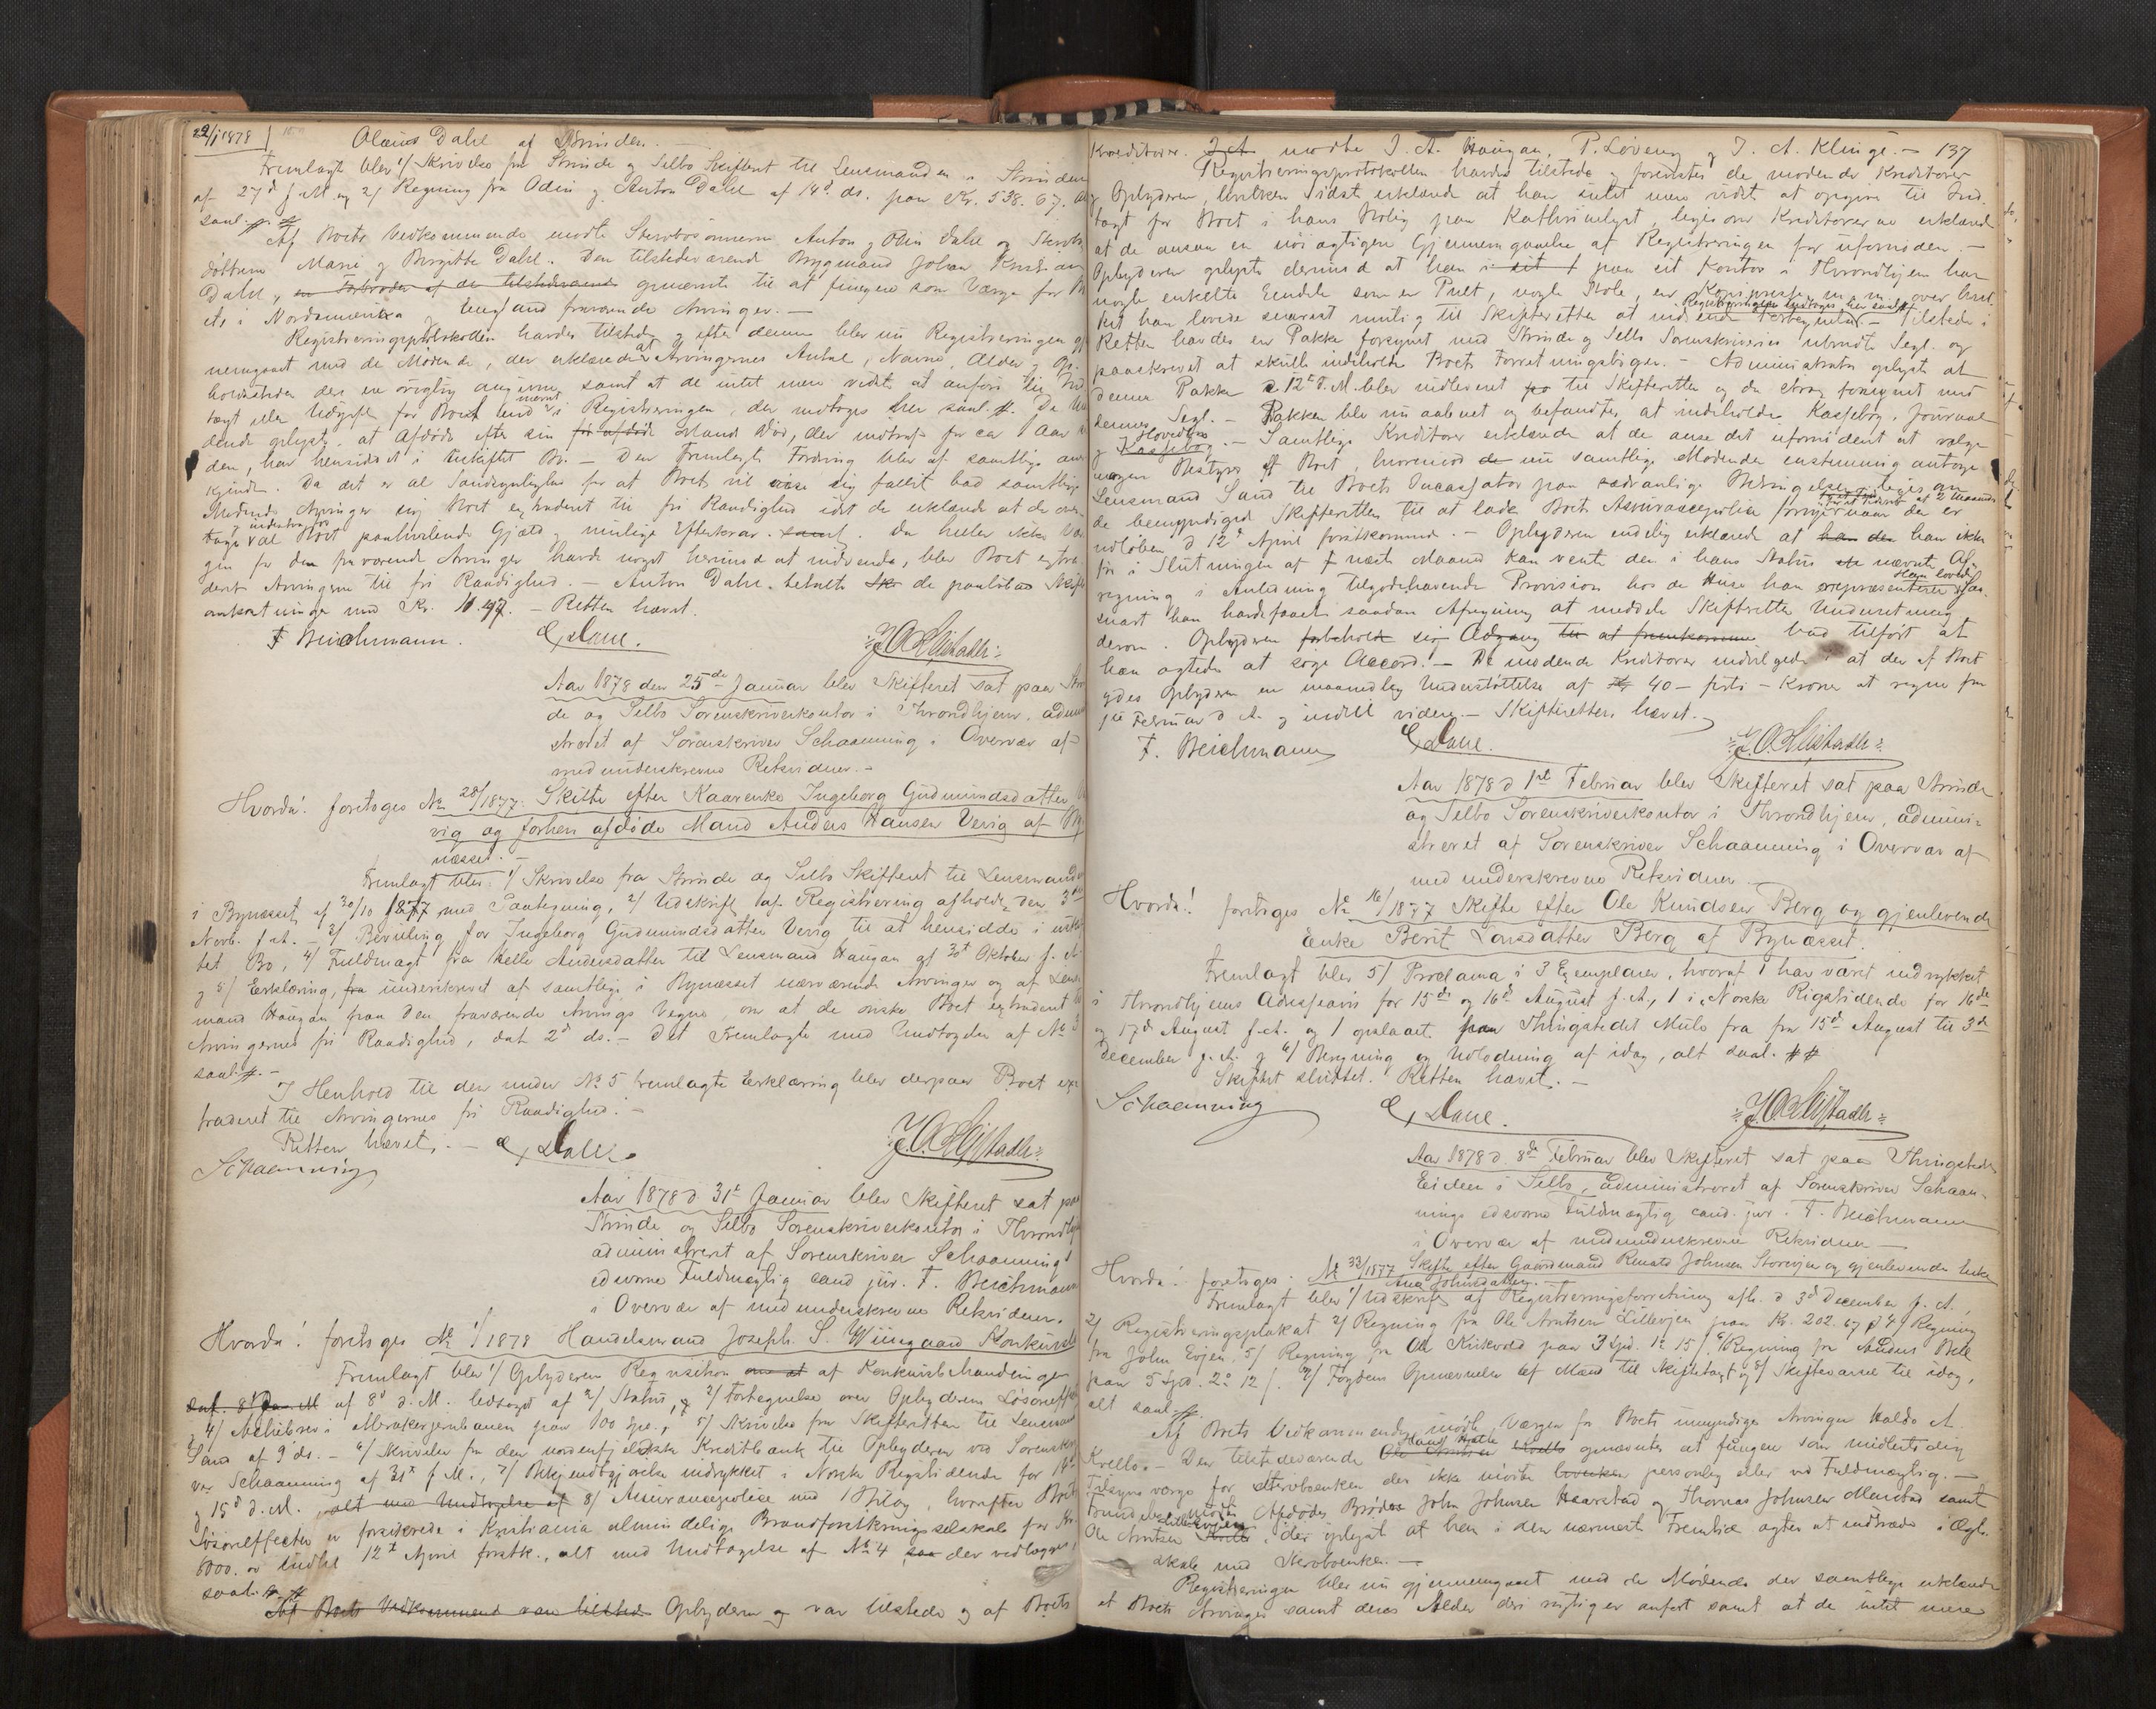 22/1 1878
Olaus Dahl af Strinden. —
Fremlagt blev 1/ Skrivelse fra Strinde og Selbo Skifteret til Lensmanden i Strinden
af 27d f. M. og 2/ Regning fra Odin og Anton Dahl af 14d ds. paa Kr. 538. 67.
saal.
Af Boets Vedkommende mødte Sterbosønnerne Anton og Odin Dahl og Sterbo
døttrene Marie og Birgitte Dahl. Den tilstedeværende Bygmand Johan Kristian
Dahl, en Farbroder af de tilstedeværende opnævntes til at fungere som Værge for
de i Nordamerika og England fraværende Arvinger. —
Registreringsprotokollen havdes tilstede og efter denne blev nu Registreringen gj
nemgaaet med de Mødende, der erklærede at Arvingernes Antal, Navne, Alder og Op-
holdssteder der ere rigtig angivne samt at de intet mere vidste at anføre til Ind
tægt eller Udgift for Boet end nævnt i Registreringen, der indtages her saal. De Mø
dende oplyste, at Afdøde efter sin før afdøde Mands Død, der indtraf for ca 1 Aar si
den, har hensiddet i uskiftet Bo. — Den fremlagte Fordring blev af samtlige aner
kjendt. Da det er al Sandsynlighed for at Boet vil vise sig fallit bad samtlige
Mødende Arvinger sig Boet extraderet til fri Raadighed idet de erklærede at de over-
tage og indestaa for al Boet paahvilende Gjæld og mulige Efterkrav. samt. Da heller ikke Vær
gen for de fraværende Arvinger havde noget herimod at indvende, blev Boet extra
deret Arvingerne til fri Raadighed. — Anton Dahl betalte Skr de paaløbne Skifte
omkostninger med Kr. 11.47. — Retten hævet.
F Beichmann. E, Dahl. J. O. Listadt
Aar 1878 den 25de Januar blev Skifteret sat paa Strin
de og Selbo Sorenskriverkontor i Throndhjem, admini
streret af Sorenskriver Schaanning i Overvær af
medunderskrevne Retsvidner. —
Hvorda! foretoges No 28/1877. Skifte efter Kaarenke Ingeborg Gudmundsdatter Ve
vig og forhen afdøde Mand Anders Hansen Vevig af By
næsset. —
Fremlagt blev: 1/ Skrivelse fra Strinde og Selbo Skifteret til Lensmanden
i Bynæsset af 30/10 1877 med Paategning, 2/ Udskrift af Registrering afholdt den 3de
Novb. f. A. — 3/ Bevilling for Ingeborg Gudmundsdatter Vevig til at hensidde i uskif
tet Bo, 4/ Fuldmagt fra Helle Andersdatter til Lensmand Haugan af 30t Oktober f. A.
og 5/ Erklæring, fra underskrevet af samtlige i Bynæsset nærværende Arvinger og af Lens
mand Haugan paa den fraværende Arvings Vegne, om at de ønske Boet extraderet til
Arvingernes fri Raadighed, dat 2d ds. — Det Fremlagte med Undtagelse af No 3
saal. —
I Henhold til den under No 5 fremlagte Erklæring blev derpaa Boet ex
traderet til Arvingernes fri Raadighed. —
Retten hævet. — E, Dahl. J. O. Listadt
Schaanning
Aar 1878 d 31t Januar blev Skifteret sat paa
Strinde og Selbo Sorenskriverkontor i Throndhjem
administreret af Sorenskriver Schaannings
edsvorne Fuldmægtig cand jur. F. Beichmann
i Overvær af medunderskrevne Retsvidner.
Hvorda! foretoges No 1/1878 Handelsmand Joseph S. Wiingaard Konkursbo
Fremlagt blev 1/ Opbyderen Reqvisition om at af Konkursbehandlingen
dat. 8' d. M af 8d d. M. ledsaget af 2/ Status, og 3/ Fortegnelse over Opbyderens Løsøreffekter
4/ Aktiebrev i Merakerjernbanen paa 100 Spd., 5/ Skrivelse fra Skifteretten til Lensmand
Sand af 9 ds. — 6/ Skrivelse fra den nordenfjeldske Kreditbank til Opbyderen ved Sorenskri
ver Schaanning af 31t f M., 7/ Bekjendtgjørelse indrykket i Norske Rigstidende for 14d
og 15d d. M. alt med Undtagelse af 8/ Assurancepolice med 1 Bilag, hvorefter Boets
Løsøreffecter er forsikrede i Kristiania almindelige Brandforsikringsselskab for Kr.
6000. indtil 12t April førstk., alt med Undtagelse af No 4, saa der vedlægges,
saal.
Af Boets Vedkommende var tilstede Opbyderen og var tilstede og af Boets
137
Kreditorer. J. A. mødte J. A. Haugan, P. Løveng og J. A. Klinge. —
Registreringsprotokollen havdes tilstede og foreviistes de mødende Kreditorer
og Opbyderen, hvilken sidste erklærede at han intet mere vidste at opgive til Ind-
tægt for Boet i hans Bolig paa Kathrinelyst, ligesom Kreditorerne erklærede
at de ansaa en nøiagtigere Gjennemgaaelse af Registreringen for ufornøden. —
Opbyderen oplyste derimod at han i sit paa sit Kontor i Throndhjem har
nogle enkelte Eiendele som en Pult, nogle Stole, en Kopipresse m. m. over hvil
ket han lovede snarest mulig til Skifteretten at indsende Fortegnelse. — Registreringen indtages her saal. Tilstede i
Retten havdes en Pakke forsynet med Strinde og Selbo Sorenskriveries ubrudte Segl og
paaskrevet at skulle indeholde Boets Forretningsbøger. — Administrator oplyste at
denne Pakke d. 12t d. M. blev indleveret paa til Skifteretten og da strax forsynet med
dennes Segl. — Pakken blev nu aabnet og befandtes at indeholde Kassebog, Journal
og Hovedbog Kassebog. — Samtlige Kreditorer erklærede at de anse det ufornødent at vælge
nogen Bestyrer af Boet, hvorimod de nu samtlige Mødende enstemmig antoge
Lensmand Sand til Boets Incassator paa sædvanlige Betingelser, ligesom
de bemyndiged Skifteretten til at lade Boets Assurancepolice fornye naar den er for et Tidsrum af 2 Maaneder
udløben d 12d April førstkommende. — Opbyderen endelig erklærede at han den han ikke
før i Slutningen af næste Maaned kan vente den i hans Status nævnte Af-
regning i Anledning tilgodehavende Provision hos de Huse han repræsenterer. Han lovede saa
snart han havde faaet saadan Afregning at meddele Skifteretten Underretning
derom. Opbyderen forbeholdt sig Adgang til at fremkomme bad tilført at
han agtede at søge Accord. — De mødende Kreditorer indvilgede i at der af Boet
ydes Opbyderen en maanedlig Understøttelse af Kr 40 — førti — Kroner at regne fra
1ste Februar d. A. og indtil videre. — Skifteretten hævet. —
F. Beichmann E, Dahl. J. O. Listadt
Aar 1878 d 1ste Februar blev Skifteret sat paa Strinde
og Selbo Sorenskriverkontor i Throndhjem, admini-
streret af Sorenskriver Schaanning i Overvær af
medunderskrevne Retsvidner —
Hvorda! foretoges No 16/1877 Skifte efter Ole Knudsen Berg og gjenlevende
Enke Berit Larsdatter Berg af Bynæsset.
Fremlagt blev 5/ Proclama i 3 Exemplarer, hvoraf 1 har været indrykket
i Throndhjems Adresseavis for 15de og 16d August f. A., 1 i Norske Rigstidende for 16de
og 17de August f. A. og 1 opslaaet paa Thingstedet Mule fra fra 15d August til 3d
December f. A. og 6/ Beregning og Udlodning af idag, alt saal.
Skiftet sluttet. Retten hævet. —
Schaanning E, Dahl. J. O. Listadt
Aar 1878 d. 8de Februar blev Skifteret sat paa Thingstedet
Eidem i Selbo, administreret af Sorenskriver Schaan-
nings edsvorne Fuldmægtig cand. jur. F. Beichmann
i Overvær af medunderskrevne Retsvidner —
Hvorda! foretoges No 33/1877 Skifte efter Gaardmand Renald Johnsen Storevjen og gjenlevende Enke
Ane Johnsdatter. —
Fremlagt blev 1/ Udskrift af Registreringsforretning afh. d 3d December f. A.,
2/ Registreringsplakat 3/ Regning fra Ole Arntsen Lillevjen paa Kr. 202. 67 4/ Regning
fra John Evjen, 5/ Regning fra Ole Kirkvold paa 3 Spd. 1 15 /. 6/ Regning fra Anders Bell
paa 5 Spd. 2 12 /. 7/ Fogdens Opnævnelse af Mænd til Skiftetagt og 8/ Skiftevarsel til idag,
alt saal.
Af Boets Vedkommende mødte Værgen for Boets umyndige Arvinger Haldo A.
Kvello. — Den tilstedeværende Ole Arntsen Kvello opnævntes at fungere som midlertidig
Tilsynsværge for Sterboenken der ikke mødte hverken personlig eller ved Fuldmægtig. —
Fremdeles mødte Afdødes Brødre John Johnsen Haarstad og Thomas Johnsen Marstad samt
Ole Arntsen Lillevjen der oplyst at han i den nærmeste Fremtid agter at indtræde i Ægte-
skab med Sterboenken. —
Registreringen blev nu gjennemgaaet med de Mødende der samtlige erklærede
at Boets Arvinger samt deres Alder deri rigtig er anført samt at de intet mere